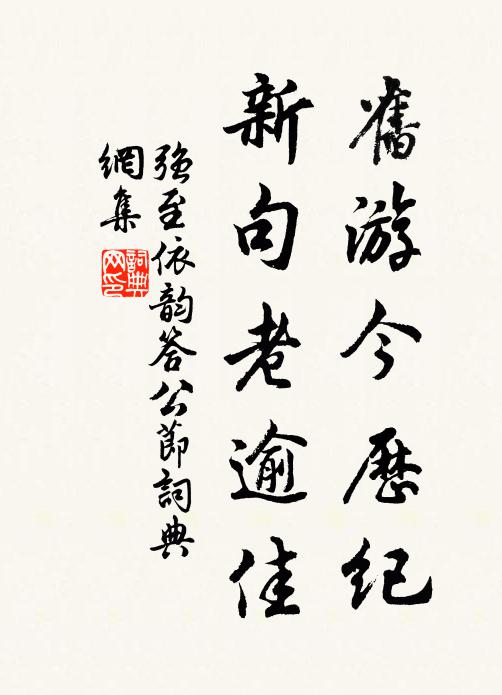 舊游今歷紀
新句老逾佳
強至依韵答公節詞典
網集
詞典
网印